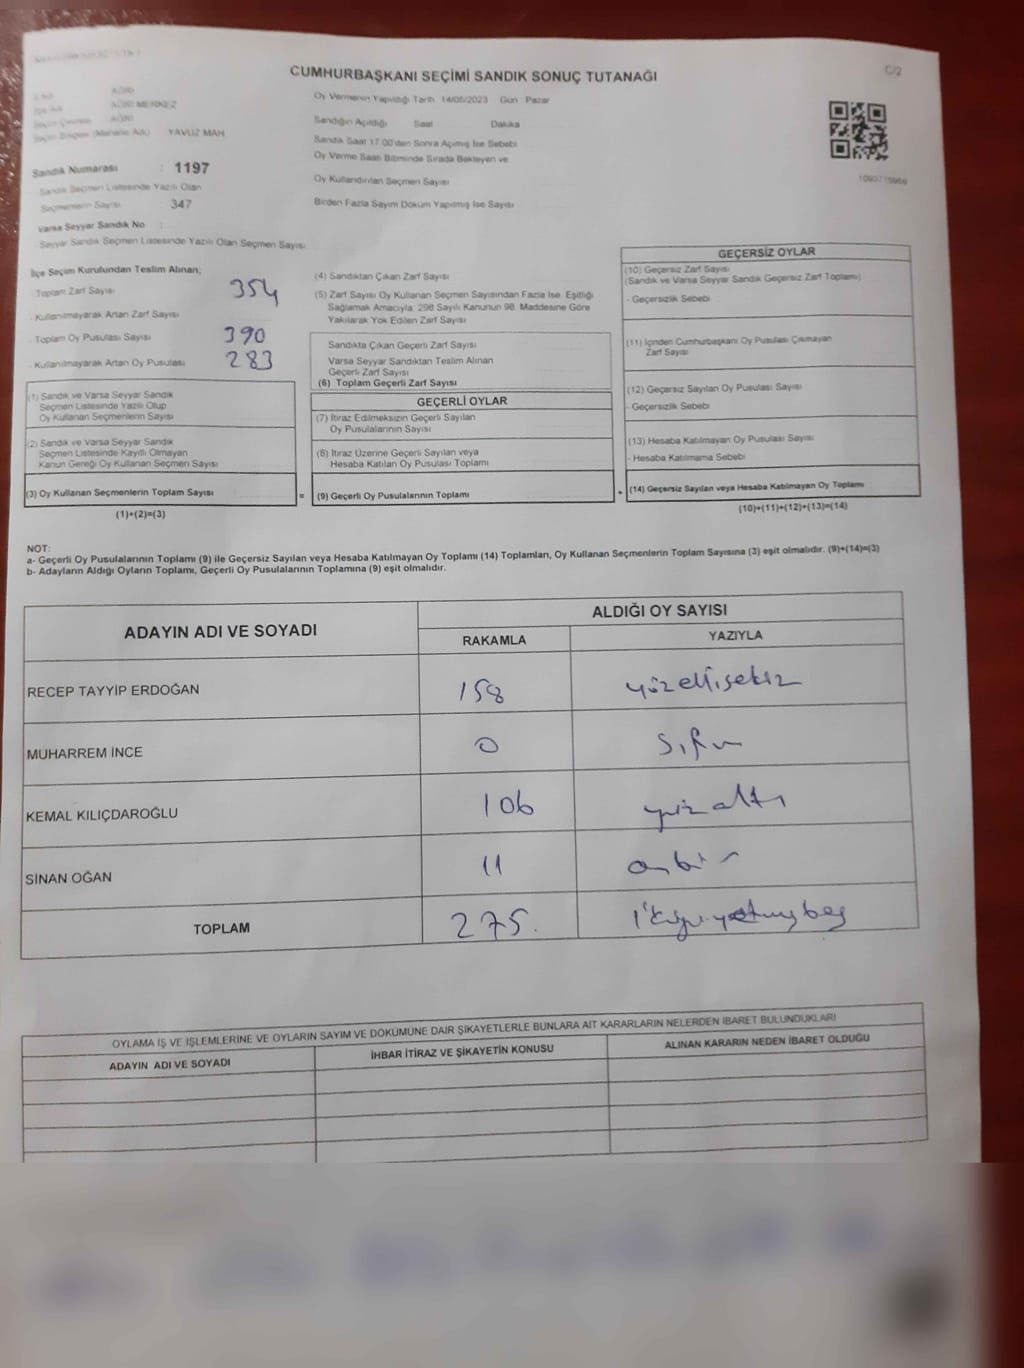 CUMHURBAŞKANI SEÇİMİ SANDIK SONUÇ TUTANAĞI
C/2
İl Adı AĞRI
İlçe Adı AĞRI MERKEZ
Seçim Çevresi AĞRI
Seçim Bölgesi (Mahalle Adı) YAVUZ MAH
Oy Vermenin Yapıldığı Tarih 14/05/2023 Gün Pazar
Sandığın Açıldığı Saat Dakika
Sandık Saat 17.00'den Sonra Açılmış İse Sebebi
Oy Verme Saati Bitiminde Sırada Bekleyen ve
Oy Kullandırılan Seçmen Sayısı
Birden Fazla Sayım Döküm Yapılmış İse Sayısı
Sandık Numarası : 1197
Sandık Seçmen Listesinde Yazılı Olan
Seçmenlerin Sayısı : 347
Varsa Seyyar Sandık No :
- Seyyar Sandık Seçmen Listesinde Yazılı Olan Seçmen Sayısı
İlçe Seçim Kurulundan Teslim Alınan;
- Toplam Zarf Sayısı 354
- Kullanılmayarak Artan Zarf Sayısı
- Toplam Oy Pusulası Sayısı 390
- Kullanılmayarak Artan Oy Pusulası 283
(1) Sandık ve Varsa Seyyar Sandık
Seçmen Listesinde Yazılı Olup
Oy Kullanan Seçmenlerin Sayısı
(2) Sandık ve Varsa Seyyar Sandık
Seçmen Listesinde Kayıtlı Olmayan
Kanun Gereği Oy Kullanan Seçmen Sayısı
(3) Oy Kullanan Seçmenlerin Toplam Sayısı
(1)+(2)=(3)
(4) Sandıktan Çıkan Zarf Sayısı
(5) Zarf Sayısı Oy Kullanan Seçmen Sayısından Fazla İse, Eşitliği
Sağlamak Amacıyla; 298 Sayılı Kanunun 98. Maddesine Göre
Yakılarak Yok Edilen Zarf Sayısı
Sandıkta Çıkan Geçerli Zarf Sayısı
Varsa Seyyar Sandıktan Teslim Alınan
Geçerli Zarf Sayısı
(6) Toplam Geçerli Zarf Sayısı
GEÇERLİ OYLAR
(7) İtiraz Edilmeksizin Geçerli Sayılan
Oy Pusulalarının Sayısı
(8) İtiraz Üzerine Geçerli Sayılan veya
Hesaba Katılan Oy Pusulası Toplamı
= (9) Geçerli Oy Pusulalarının Toplamı
GEÇERSİZ OYLAR
(10) Geçersiz Zarf Sayısı
(Sandık ve Varsa Seyyar Sandık Geçersiz Zarf Toplamı)
- Geçersizlik Sebebi
(11) İçinden Cumhurbaşkanı Oy Pusulası Çıkmayan
Zarf Sayısı
(12) Geçersiz Sayılan Oy Pusulası Sayısı
- Geçersizlik Sebebi
(13) Hesaba Katılmayan Oy Pusulası Sayısı
- Hesaba Katılmama Sebebi
+ (14) Geçersiz Sayılan veya Hesaba Katılmayan Oy Toplamı
(10)+(11)+(12)+(13)=(14)
NOT:
a- Geçerli Oy Pusulalarının Toplamı (9) ile Geçersiz Sayılan veya Hesaba Katılmayan Oy Toplamı (14) Toplamları, Oy Kullanan Seçmenlerin Toplam Sayısına (3) eşit olmalıdır. (9)+(14)=(3)
b- Adayların Aldığı Oyların Toplamı, Geçerli Oy Pusulalarının Toplamına (9) eşit olmalıdır.
ADAYIN ADI VE SOYADI
ALDIĞI OY SAYISI
RAKAMLA YAZIYLA
RECEP TAYYİP ERDOĞAN 158 yüzellisekiz
MUHARREM İNCE 0 sıfır
KEMAL KILIÇDAROĞLU 106 yüz altı
SİNAN OĞAN 11 onbir
TOPLAM 275. ikiyüzyetmişbeş
OYLAMA İŞ VE İŞLEMLERİNE VE OYLARIN SAYIM VE DÖKÜMÜNE DAİR ŞİKAYETLERLE BUNLARA AİT KARARLARIN NELERDEN İBARET BULUNDUKLARI
ADAYIN ADI VE SOYADI İHBAR İTİRAZ VE ŞİKAYETİN KONUSU ALINAN KARARIN NEDEN İBARET OLDUĞU